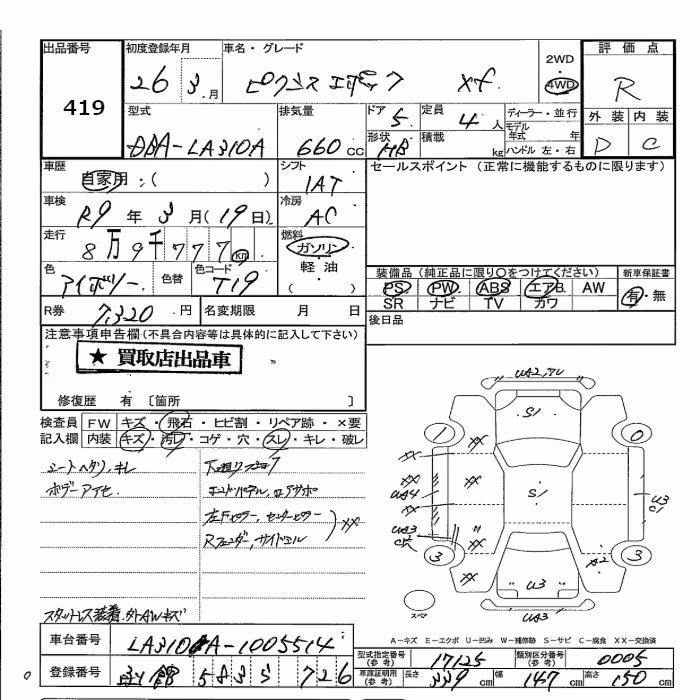 出品番号
419
初度登録年月
26年 3月
車名・グレード
ピクシス エポック Xf
2WD・4WD
評価点
R
外装 内装
D C
型式
DBA-LA310A
排気量
660cc
ドア 5
形状 HB
定員 4人
積載 kg
ディーラー・並行
モデル年式 年
ハンドル 左・右
車歴
自家用:( )
シフト
IAT
セールスポイント(正常に機能するものに限ります)
車検
R9年 3月(19日)
冷房
AC
走行
8万9千777km
燃料
ガソリン・軽油
( )
色
アイボリー
色替
色コード
T19
装備品(純正品に限り○をつけてください)
PS PW ABS エアB AW
SR ナビ TV カワ
新車保証書
有・無
R券
7,320円
名変期限 月 日
後日品
注意事項申告欄(不具合内容等は具体的に記入して下さい)
★ 買取店出品車
修復歴 有 〔箇所 〕
検査員記入欄
FW キズ・飛石・ヒビ割・リペア跡・×要
内装 キズ・汚レ・コゲ・穴・スレ・キレ・破レ
シートヘタリ、キレ
ボデーアイセ
左下ピラー、センターピラー
Rフェンダー、サイドシル
XX
スタットレス装着、外AWキズ
UA2,アリ
S1
1
0
XX
XX
XX
UA4
XX
S1
U3
C1
UA3
3
XX
XX
A2
3
U3
UA3
スペア
A-キズ E-エクボ U-凹み W-補修跡 S-サビ C-腐食 XX-交換済
車台番号
LA310A-1005514
登録番号
函館 583 726
型式指定番号(参考)
17125
類別区分番号(参考)
0005
車庫証明用(参考)
長さ 339cm
幅 147cm
高さ 150cm